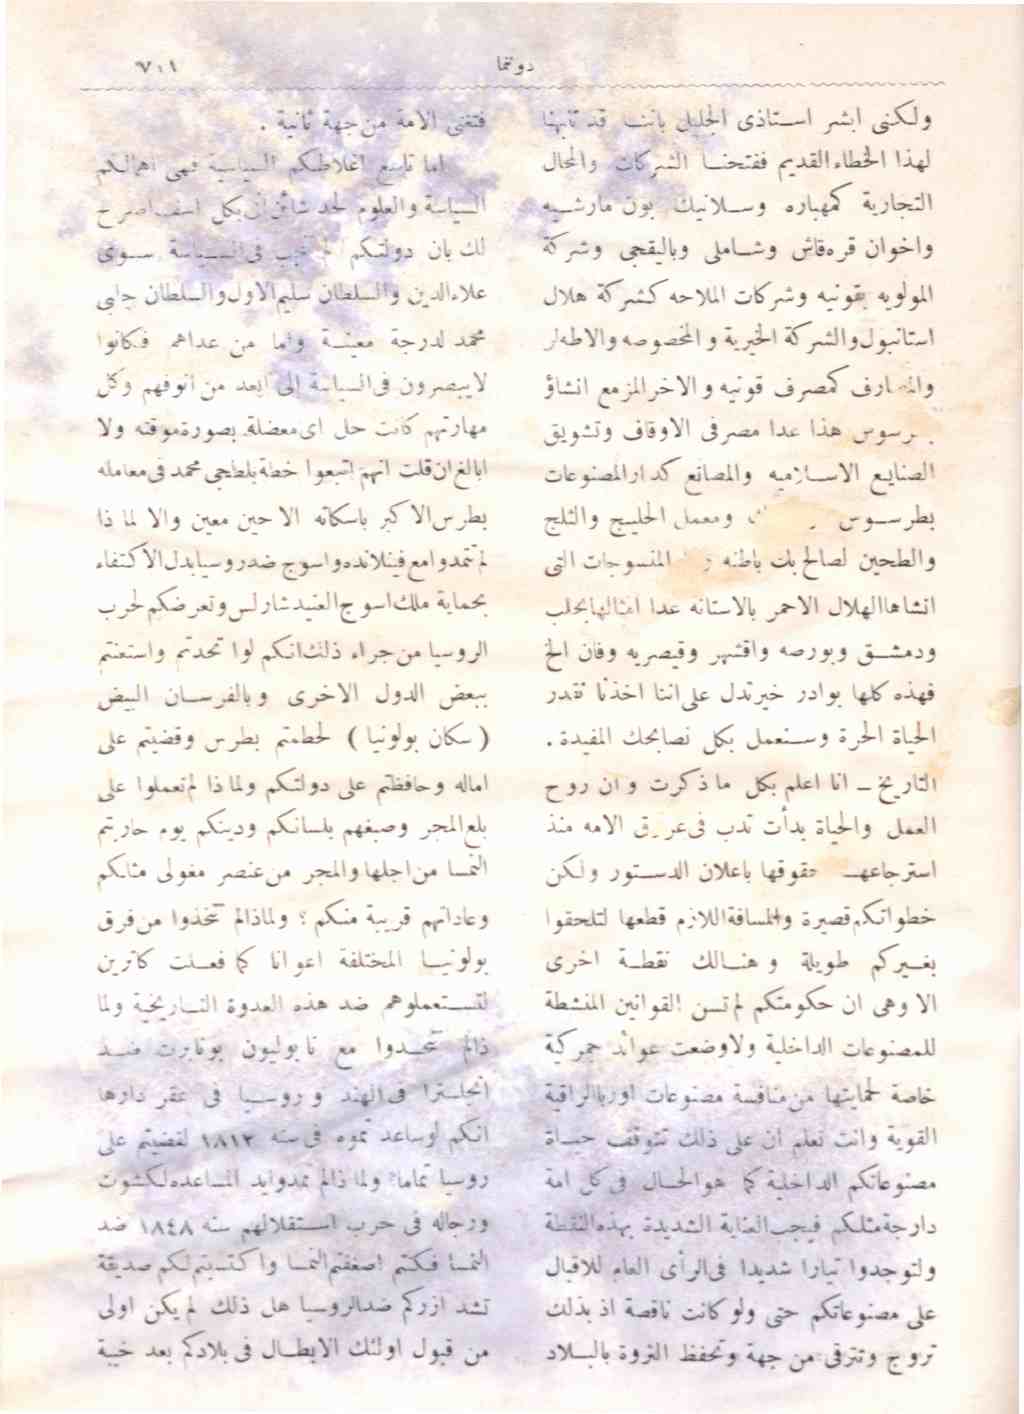 دوننما
٧٠١
ولكنى ابشر استاذى الجليل باننا قد تابهنا
لهذا الخطاء القديم ففتحنا الشركات والمحال
التجارية كمهباره وسلانيك بون مارشيه
واخوان قره قاش وشاملى وباليقجى وشركة
المولويه بقونيه وشركات الملاحه كشركة هلال
استانبول والشركة الخيرية والمخصوصه والاطه لر
والمصارف كمصرف قونيه والاخر المزمع انشاؤ
هذا عدا مصرفى الاوقاف وتشويق
الصنايع الاسلاميه والمصانع كدار المصنوعات
بطرسوس ومعمل الخليج والثلج
والطحين لصالح بك باطنه المنسوجات التى
انشاها الهلال الاحمر بالاستانه عدا امثالها بحلب
ودمشق وبورصه واقشهر وقيصريه وفان الخ
فهذه كلها بوادر خير تدل على اننا اخذنا نقدر
الحياة الحرة وسنعمل بكل نصايحك المفيدة .
التاريخ ــ انا اعلم بكل ما ذكرت وان روح
العمل والحياة بدأت تدب فى عروق الامه منذ
استرجاعها حقوقها باعلان الدستور ولكن
خطواتكم قصيرة والمسافة اللازم قطعها لتلحقوا
بغيركم طويلة وهنالك نقطة اخرى
الا وهى ان حكومتكم لم تسن القوانين المنشطة
للمصنوعات الداخلية ولا وضعت عوائد جمركية
خاصة لحمايتها من منافسة مصنوعات اوربا الراقية
القوية وانت تعلم ان على ذلك تتوقف حياة
مصنوعاتكم الداخلية كما هو الحال فى كل امة
دارجة مثلكم فيجب العناية الشديدة بهذه النقطة
ولتوجدوا تيارا شديدا فى الرأى العام للاقبال
على مصنوعاتكم حتى ولو كانت ناقصة اذ بذلك
تروج وتترقى من جهة وتحفظ الثروة بالبلاد
فتغنى الامة من جهة ثانية .
اما تاسع اغلاطكم السياسية فهى اهمالكم
السياسة والعلوم لحد شائن انى بكل اسف اصرح
لك بان دولتكم لم تنجب فى السياسة سوى
علاء الدين والسلطان سليم الاول والسلطان جلبى
محمد لدرجة معينة واما من عداهم فكانوا
لا يبصرون فى السياسة إلى ابعد من انوفهم وكل
مهارتهم كانت حل اى معضلة بصورة موقته ولا
ابالغ ان قلت انهم اتبعوا خطة بلطجى محمد فى معامله
بطرس الاكبر باسكاته الا حين معين والا لما ذا
لم تمدوا مع فينلانده واسوج ضد روسيا بدل الاكتفاء
بحماية ملك اسوج العنيد شارلس وتعرضكم لحرب
الروسيا من جراء ذلك انكم لوا تحدتم واستعنتم
ببعض الدول الاخرى وبالفرسان البيض
( سكان بولونيا ) لحطمتم بطرس وقضيتم على
اماله وحافظتم على دولتكم ولما ذا لم تعملوا على
بلع المجر وصبغهم بلسانكم ودينكم يوم حاربتم
النمسا من اجلها والمجر من عنصر مغولى مثلكم
وعاداتهم قريبة منكم ؟ ولماذا لم تتخذوا من فرق
بولونيا المختلفة اعوانا كما فعلت كاترين
لتستعملوهم ضد هذه العدوة التاريخية ولما
ذا لم تتحدوا مع نابوليون بونابرت ضد
انجلترا فى الهند و روسيا فى عقر دارها
انكم لوساعد تموه فى سنه ١٨١٢ لقضيتم على
روسيا تماما ولما ذا لم تمدوا يد المساعده لكشوت
ورجاله فى حرب استقلالهم سنه ١٨٤٨ ضد
النمسا فكنتم اضعفتم النمسا واكتسبتم لكم صديقة
تشد ازركم ضد الروسيا هل ذلك لم يكن اولى
من قبول اولئك الابطال فى بلادكم بعد خيبة